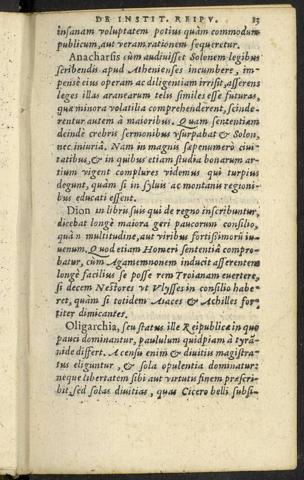 DE INSTIT. REIPV. 83
insanam voluptatem potius quàm commodum
publicum, aut veram rationem sequeretur.
Anacharsis cùm audiuisset Solonem legibus
scribendis apud Athenienses incumbere, im-
pensè eius operam ac diligentiam irrisit, asserens
leges illas aranearum telis similes esse futuras,
quæ minora volatilia comprehenderent, scinde-
rentur autem à maioribus. Quam sententiam
deindè crebris sermonibus vsurpabat & Solon,
nec iniuriâ. Nam in magnis sæpenumerò ciui-
tatibus, & in quibus etiam studia bonarum ar-
tium vigent complures videmus qui turpius
degunt, quàm si in syluis ac montanis regioni-
bus educati essent.
Dion in libris suis qui de regno inscribuntur,
dicebat longè maiora geri paucorum consilio,
quã n multitudine, aut viribus fortissimorũ iu-
uenum. Quod etiam Homeri sententiã compro-
batur, cùm Agamemnonem inducit asserentem
longè facilius se posse rem Troianam euertere,
si decem Nestores vt Vlysses in consilio habe-
ret, quàm si totidem Aiaces & Achilles for-
titer dimicantes.
Oligarchia, seu status ille Reipublicæ in quo
pauci dominantur, paululum quidpiam à tyrã-
nide differt. A censu enim & diuitijs magistra-
tus eliguntur, & sola opulentia dominatur:
neque libertatem sibi aut virtutis finem præscri-
bit, sed solas diuitias, quas Cicero belli subsi-